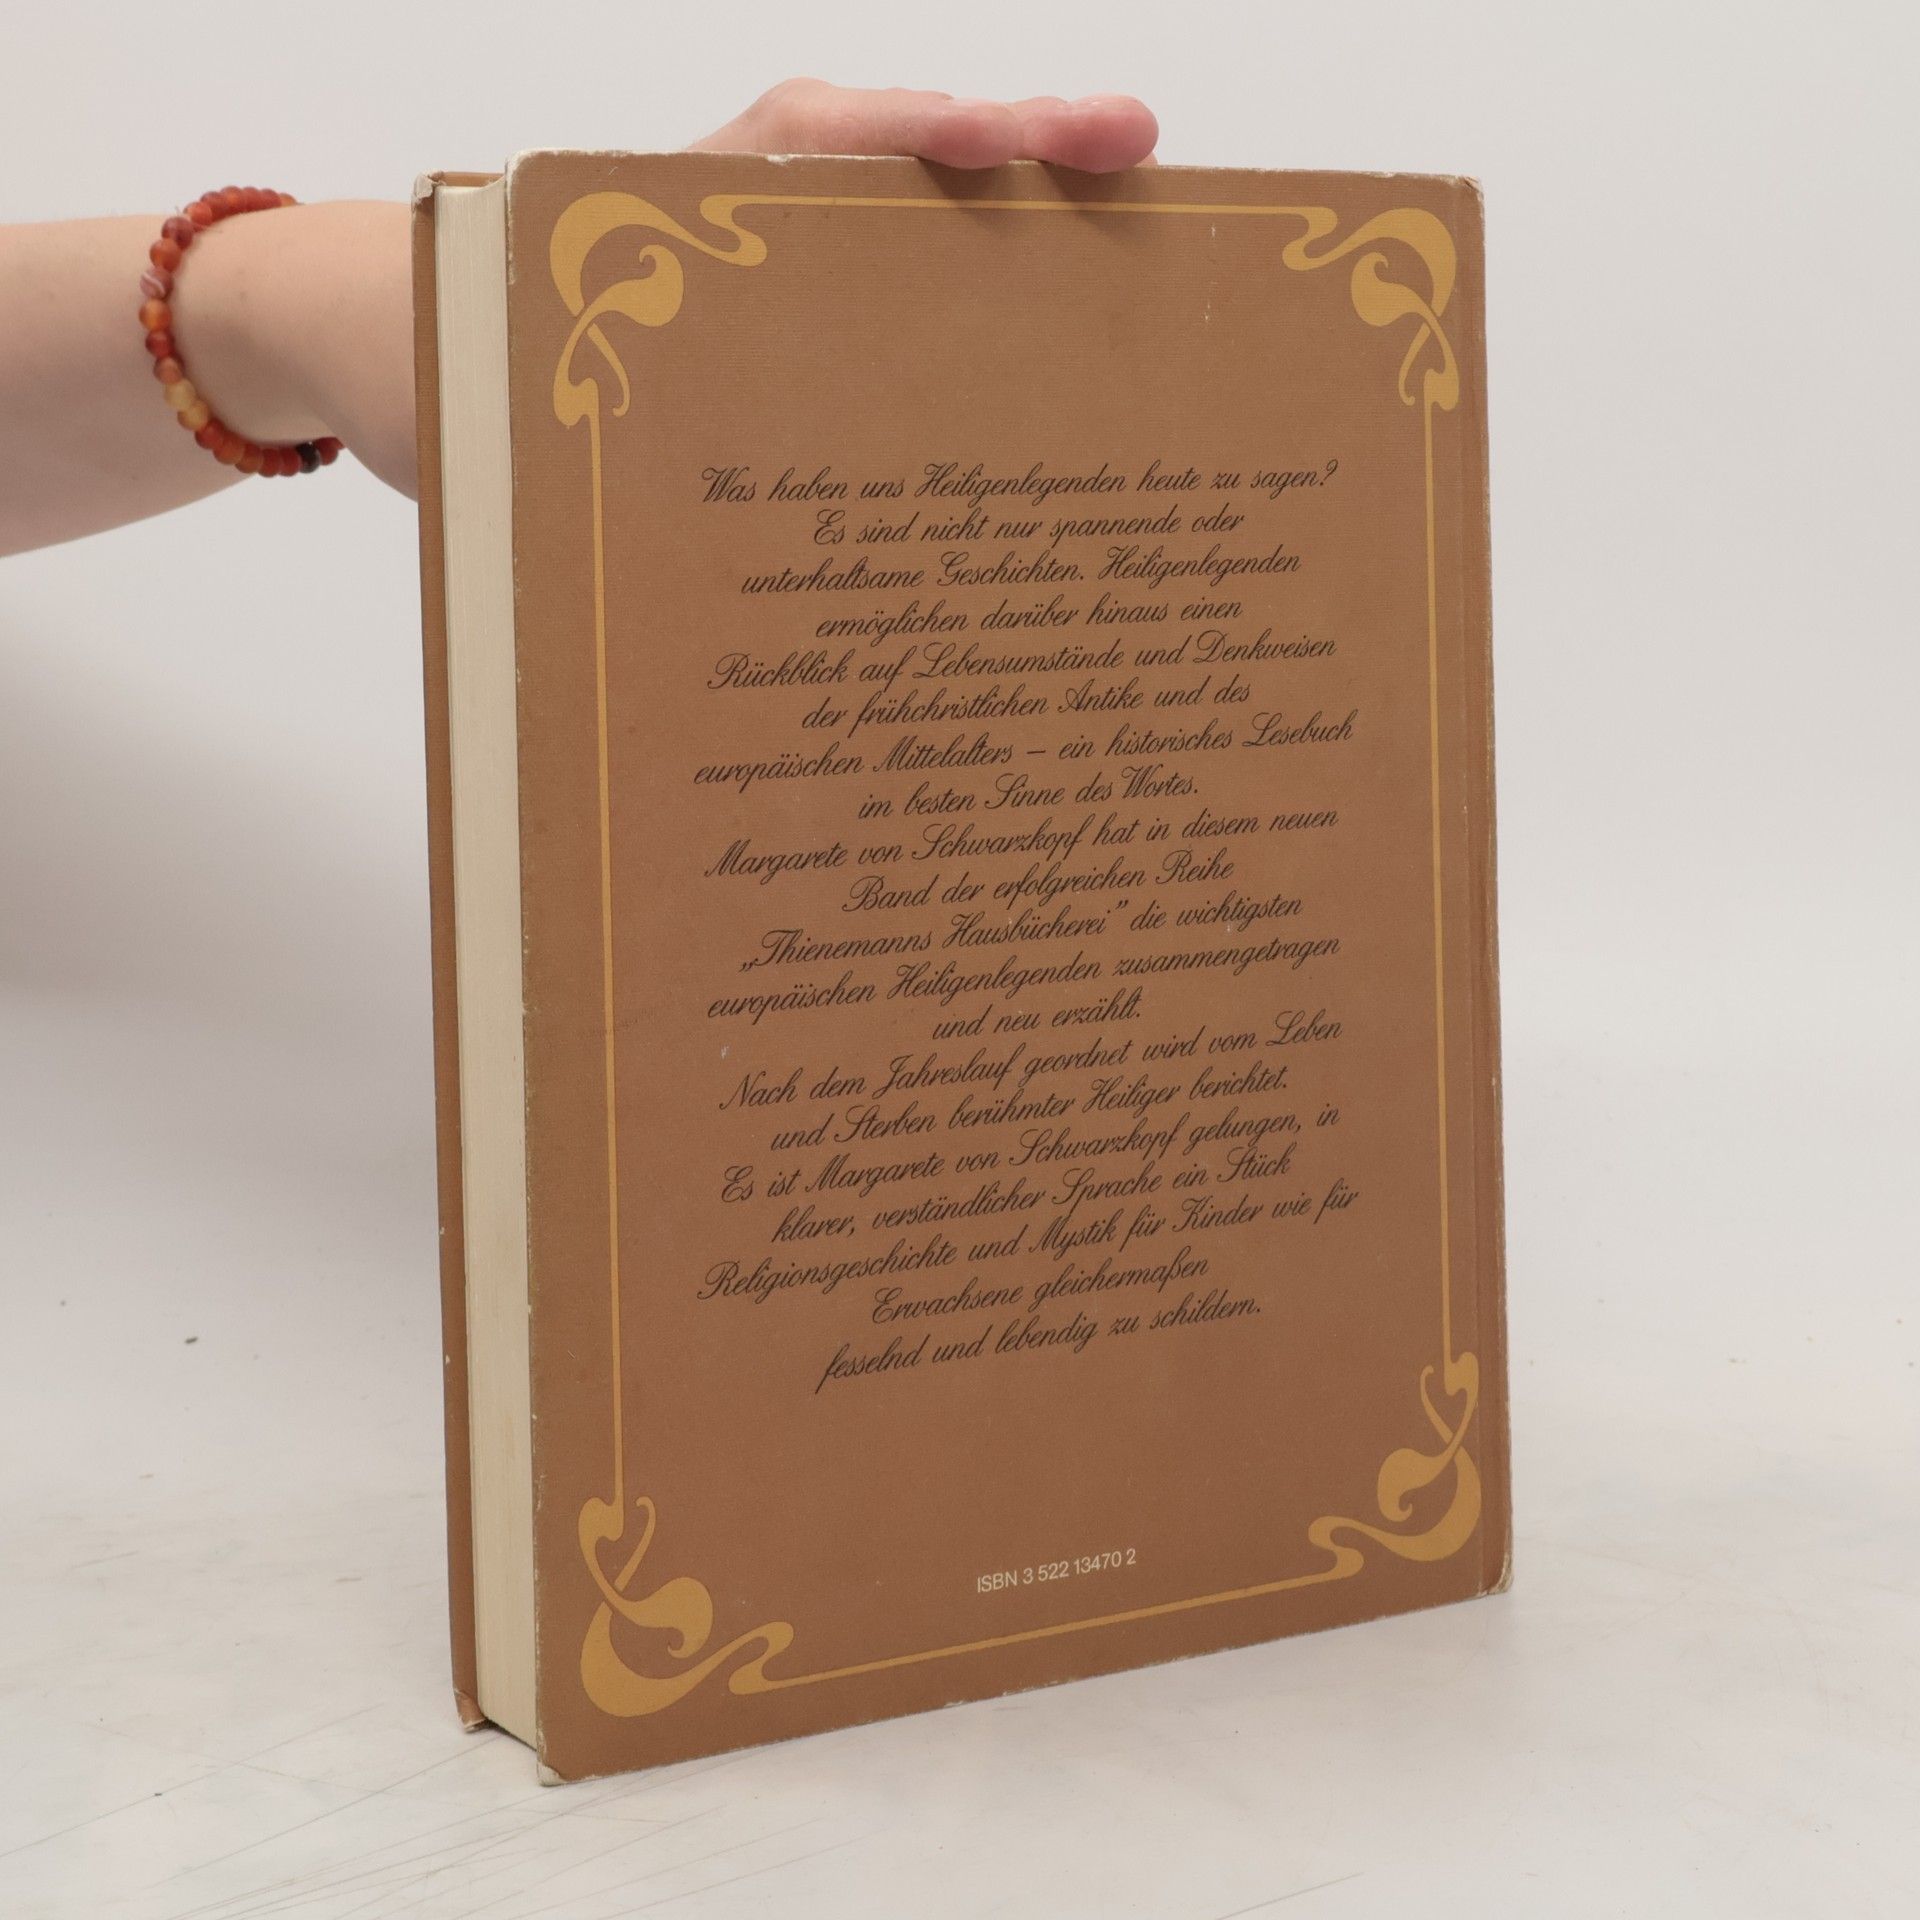 Was haben uns Heiligenlegenden heute zu sagen?
Es sind nicht nur spannende oder
unterhaltsame Geschichten. Heiligenlegenden
ermöglichen darüber hinaus einen
Rückblick auf Lebensumstände und Denkweisen
der frühchristlichen Antike und des
europäischen Mittelalters – ein historisches Lesebuch
im besten Sinne des Wortes.
Margarete von Schwarzkopf hat in diesem neuen
Band der erfolgreichen Reihe
„Thienemanns Hausbücherei” die wichtigsten
europäischen Heiligenlegenden zusammengetragen
und neu erzählt.
Nach dem Jahreslauf geordnet wird vom Leben
und Sterben berühmter Heiliger berichtet.
Es ist Margarete von Schwarzkopf gelungen, in
klarer, verständlicher Sprache ein Stück
Religionsgeschichte und Mystik für Kinder wie für
Erwachsene gleichermaßen
fesselnd und lebendig zu schildern.
ISBN 3 522 13470 2